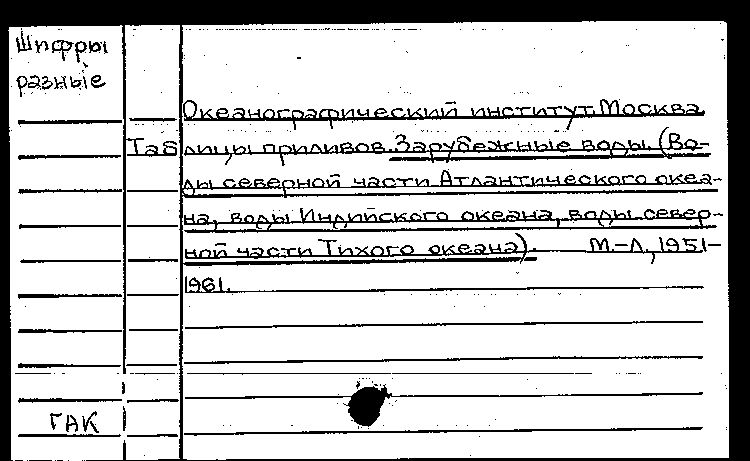 Шифры
разные
Океанографический институт. Москва
Таблицы приливов. Зарубежные воды. (Во-
ды северной части Атлантического океа-
на, воды Индийского океана, воды север-
ной части Тихого океана). М.-Л., 1951-
1961.
ГАК